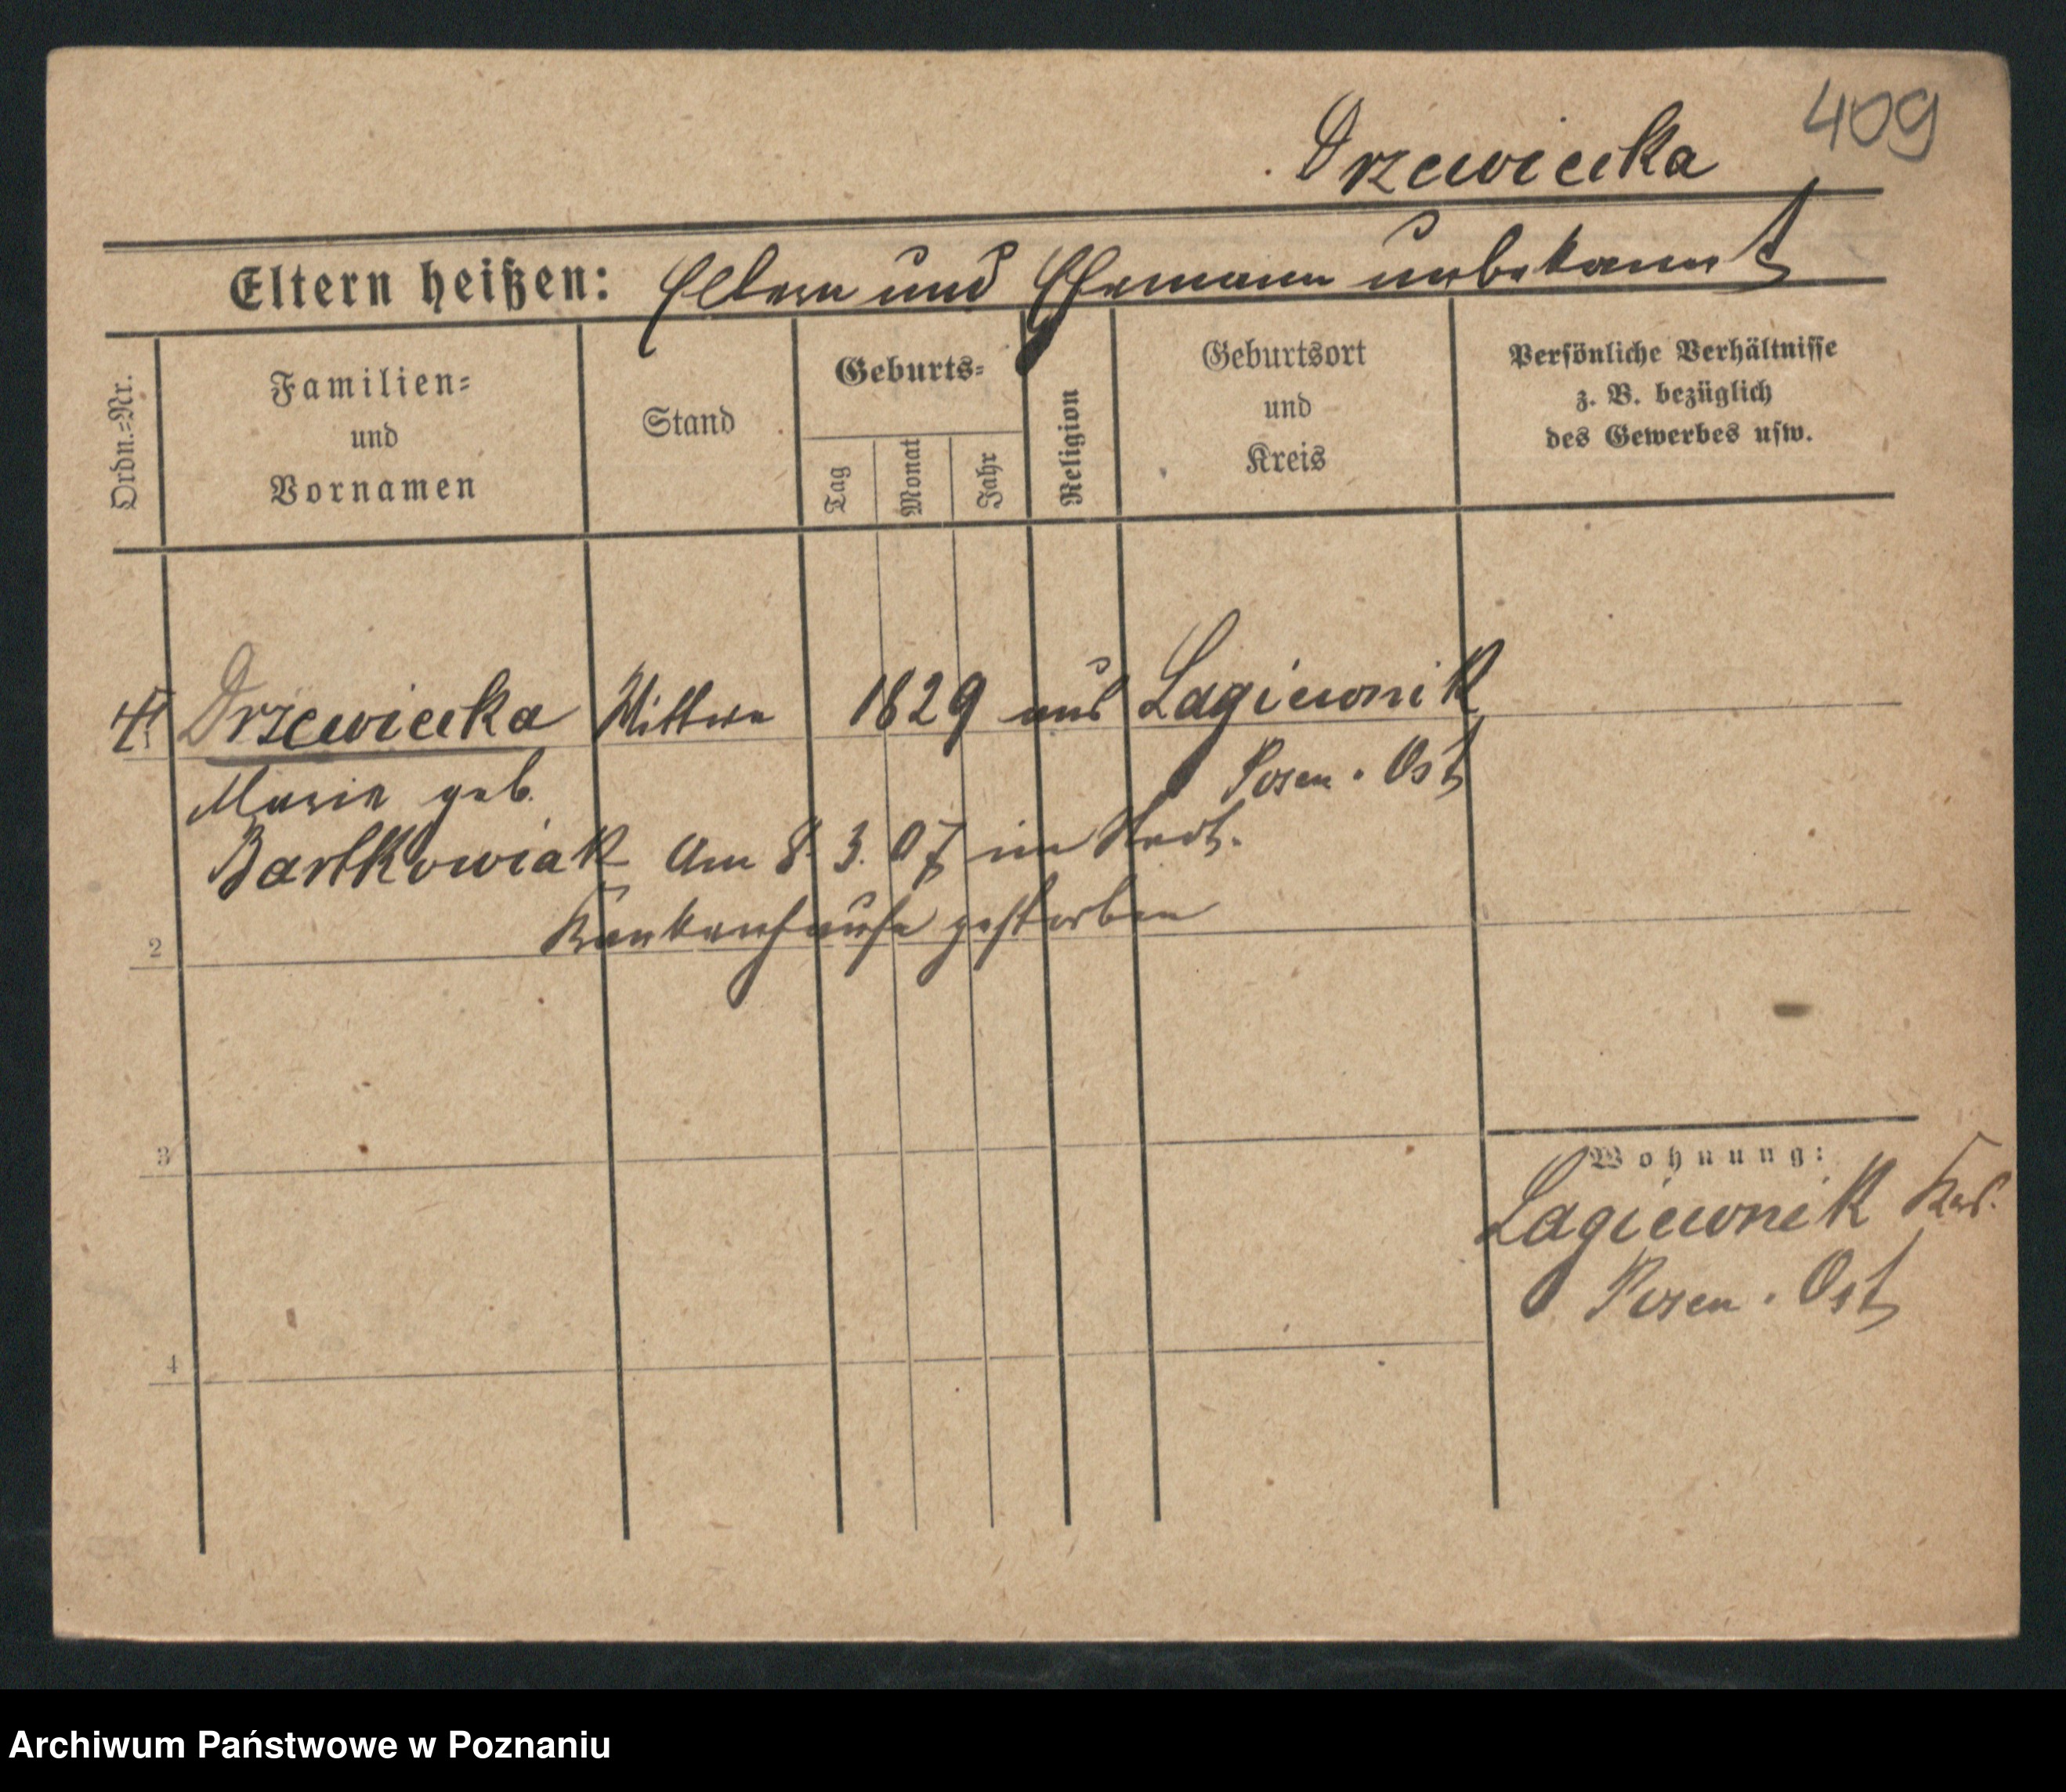 409
Drzewiecka
Eltern heißen: Eltern und Ehemann unbekannt
Ordn.-Nr.
Familien-
und
Vornamen
Stand
Geburts-
Tag
Monat
Jahr
Religion
Geburtsort
und
Kreis
Persönliche Verhältnisse
z. B. bezüglich
des Gewerbes usw.
Drzewiecka Wittwe 1829 aus Lagiewnik
Marie geb. Posen. Ost
Bartkowiak Am 8. 3. 07 im Stadt.
Krankenhause gestorben
2
3
Wohnung:
Lagiewnik Krs.
Posen. Ost
4
Archiwum Państwowe w Poznaniu